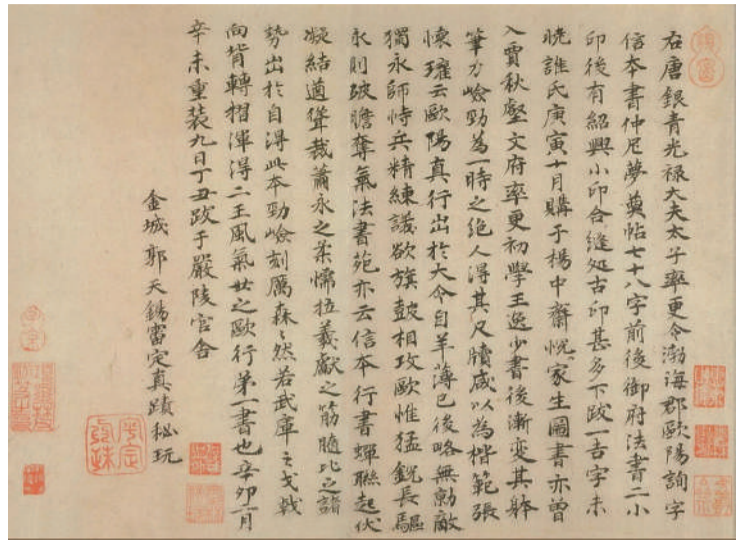 右唐銀青光祿大夫太子率更令渤海郡歐陽詢字
信本書仲尼夢奠帖七十八字前後御府法書二小
印後有紹興小印合縫処古印甚多下政一吉字未
曉誰氏庚寅十月購于楊中齋悅家生圖書亦曾
入賈秋壑文府率更初學王逸少書後漸變其躰
筆力嶮勁為一時之絕人得其尺牘咸以為楷範張
懷瓘云歐陽真行出於大令自羊薄已後略無勍敵
獨永師恃兵精練議欲旗鼓相攻歐惟猛銳長驅
永則破膽奪氣法書苑亦云信本行書蟬聯起伏
凝結遒聳裁蕭永之柔懦拉羲獻之筋髓比之諸
勢出於自得此本勁嶮刻厲森〻然若武庫之戈戟
向背轉摺渾得二王風氣世之歐行第一書也辛卯一月
辛未重装九日丁丑跋于嚴陵官舍
金城郭天錫審定真蹟秘玩